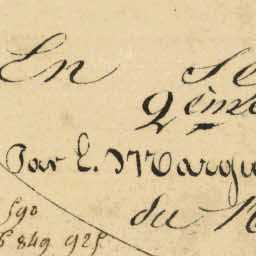 En Se
2ème
Par E. Margu
du N
590
849 925